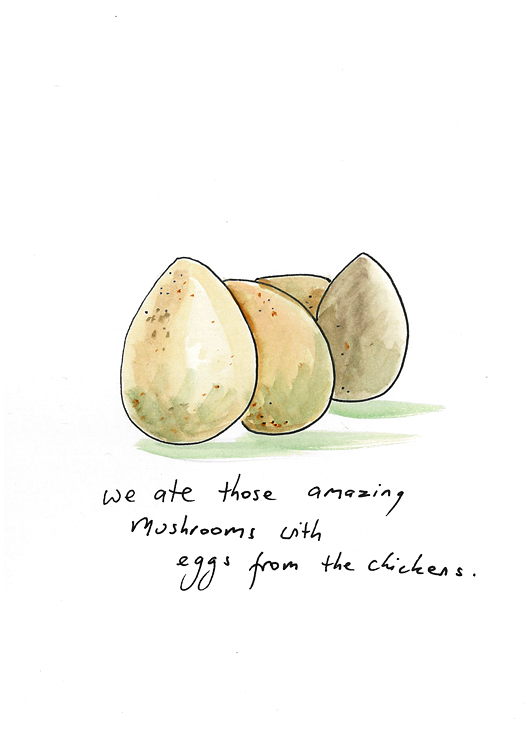 we ate those amazing
mushrooms with
eggs from the chickens.